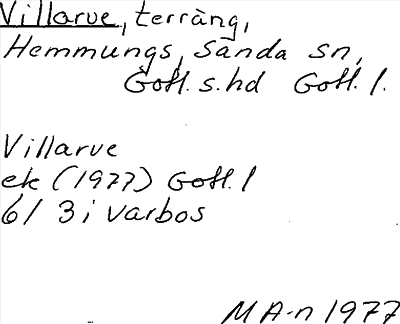 Villarve, terräng,
Hemmungs, Sanda sn,
Gotl. s. hd Gotl. l.
Villarve
ek (1977) Gotl. l
61 3 i Varbos
M A-n 1977